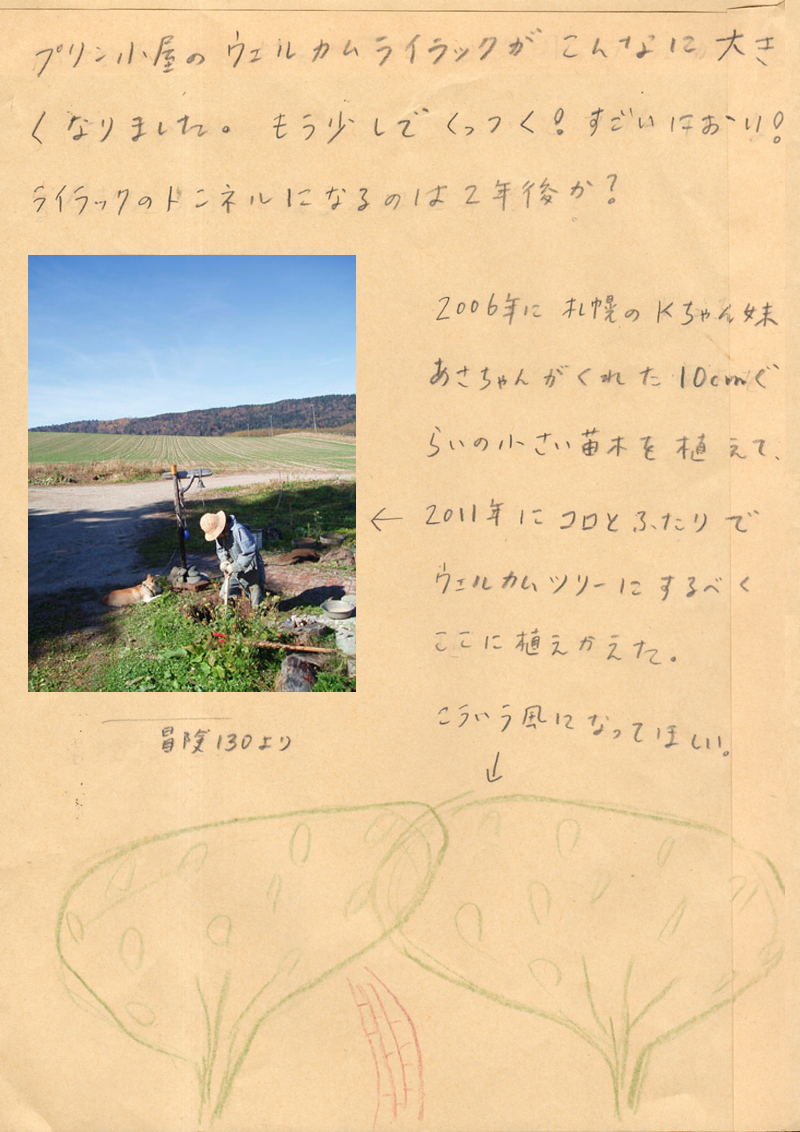 プリン小屋のウェルカムライラックがこんなに大き
くなりました。もう少しでくっつく!すごいにおーい!
ライラックのトンネルになるのは2年後か?
2006年に札幌のKちゃん妹
あさちゃんがくれた10cmぐ
らいの小さい苗木を植えて、
← 2011年にコロとふたりで
ウェルカムツリーにするべく
ここに植えかえた。
こういう風になってほしい。
↓
冒険130より